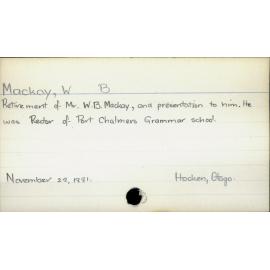 Mackay, W B
Retirement of Mr. W.B. Mackay, and presentation to him. He
was Rector of Port Chalmers Grammar school.
November 29, 1881.
Hocken, Otago.